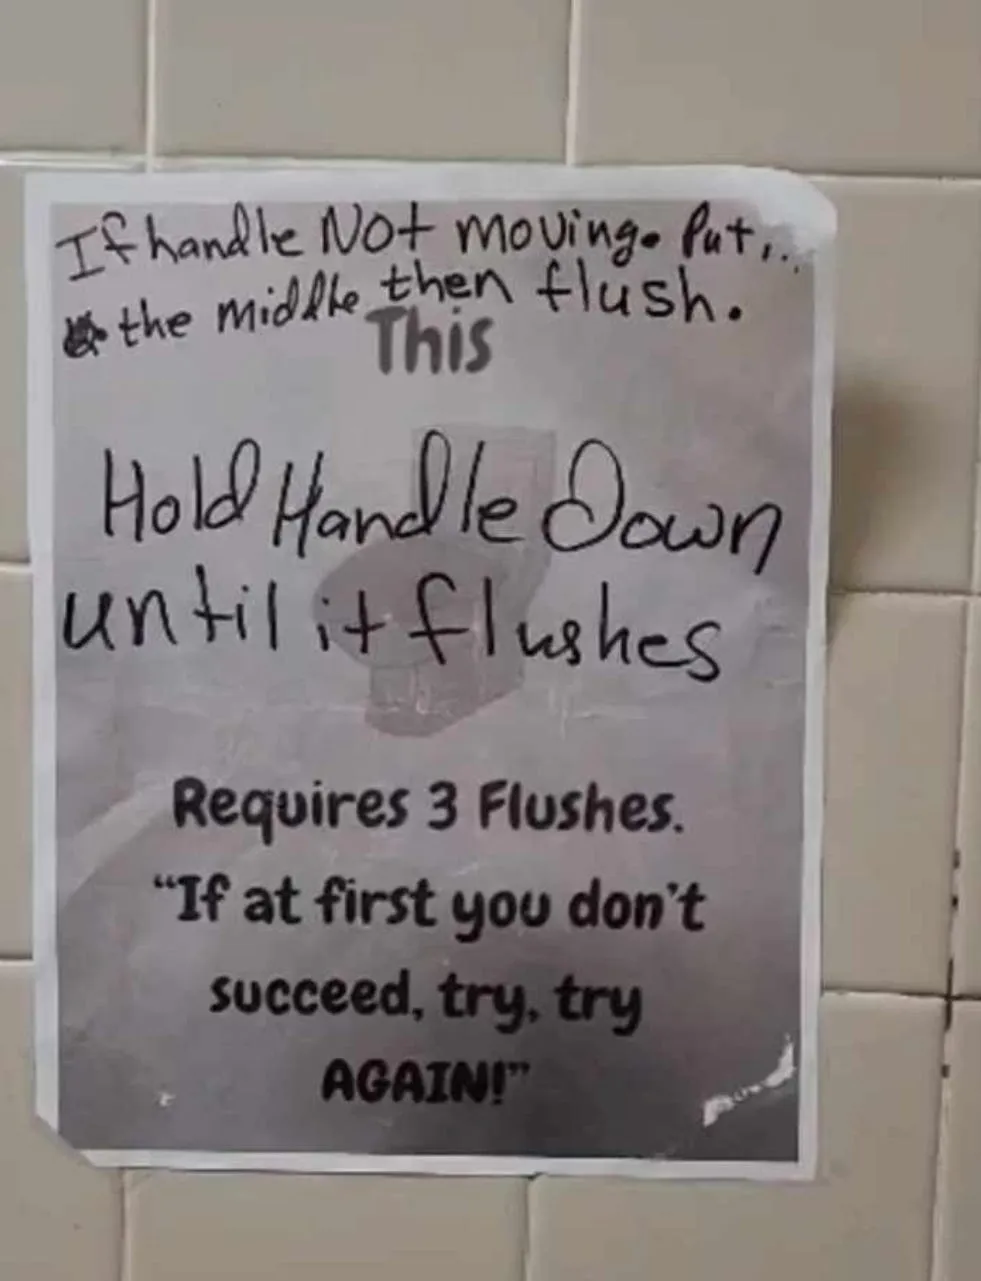 If handle Not moving. Put...
the middle then flush.
This
Hold Handle Down
until it flushes
Requires 3 Flushes.
“If at first you don’t
succeed, try, try
AGAIN!”